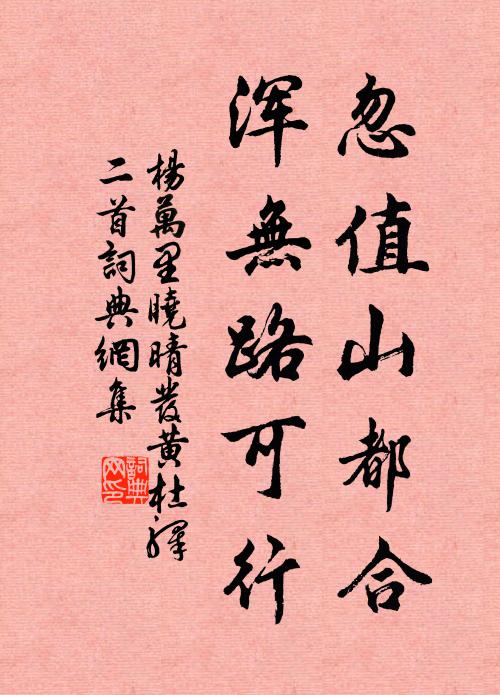 忽值山都合
浑無路可行
楊萬里曉晴發黃杜驛
二首詞典網集
詞典
网印